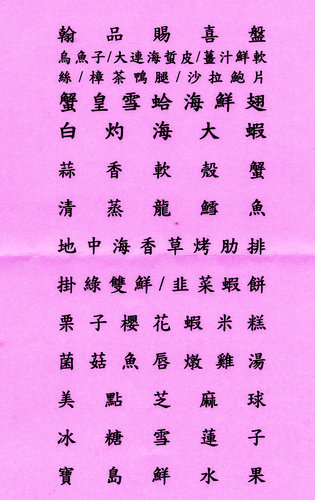 翰品賜喜盤
烏魚子/大連海蜇皮/薑汁鮮軟
絲/樟茶鴨腿/沙拉鮑片
蟹皇雪蛤海鮮翅
白灼海大蝦
蒜香軟殼蟹
清蒸龍鱈魚
地中海香草烤肋排
掛綠雙鮮/韭菜蝦餅
栗子櫻花蝦米糕
菌菇魚唇燉雞湯
美點芝麻球
冰糖雪蓮子
寶島鮮水果